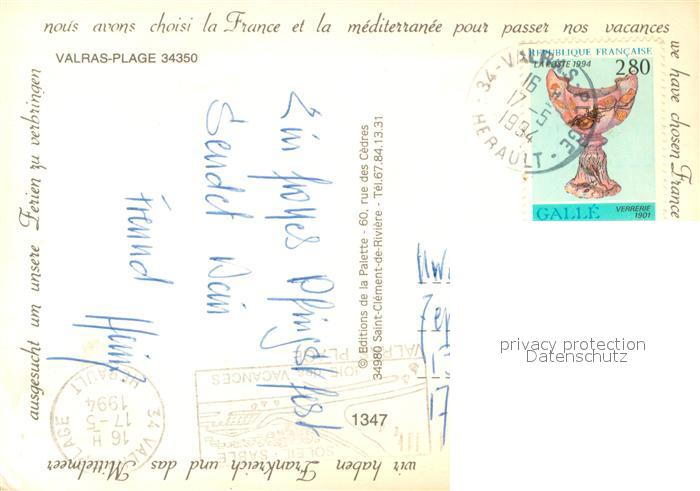 nous avons choisi la France et la méditerranée pour passer nos vacances
we have chosen France
wir haben Frankreich und das Mittelmeer
ausgesucht um unsere Ferien zu verbringen
VALRAS-PLAGE 34350
REPUBLIQUE FRANÇAISE
LA POSTE 1994
2,80
GALLÉ
VERRERIE
1901
34-VALRAS-PLAGE
16 H
17-5
1994
HERAULT
Ein frohes Pfingstfest
sendet Dein
Freund Heinz
© Editions de la Palette - 60, rue des Cèdres
34980 Saint-Clément-de-Rivière - Tél.67.84.13.31
1347
VALRAS
PLAGE
VACANCES
SOLEIL SABLE
34 VAL
LAGE
16 H
17-5
1994
HERAULT
17
privacy protection
Datenschutz